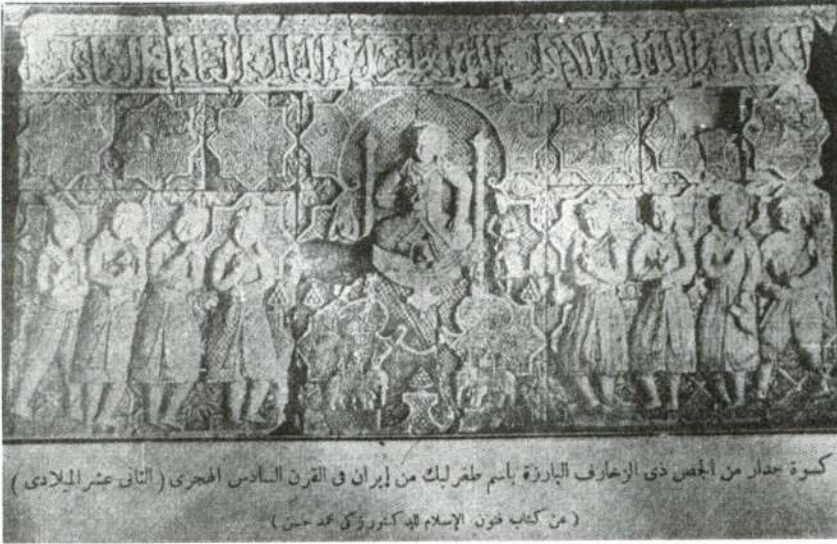 الملك العادل
كسوة جدار من الجص ذى الزخارف البارزة باسم طغرلبك من إيران فى القرن السادس الهجرى ( الثانى عشر الميلادى )
( عن كتاب فنون الإسلام للدكتور زكى محمد حسن )